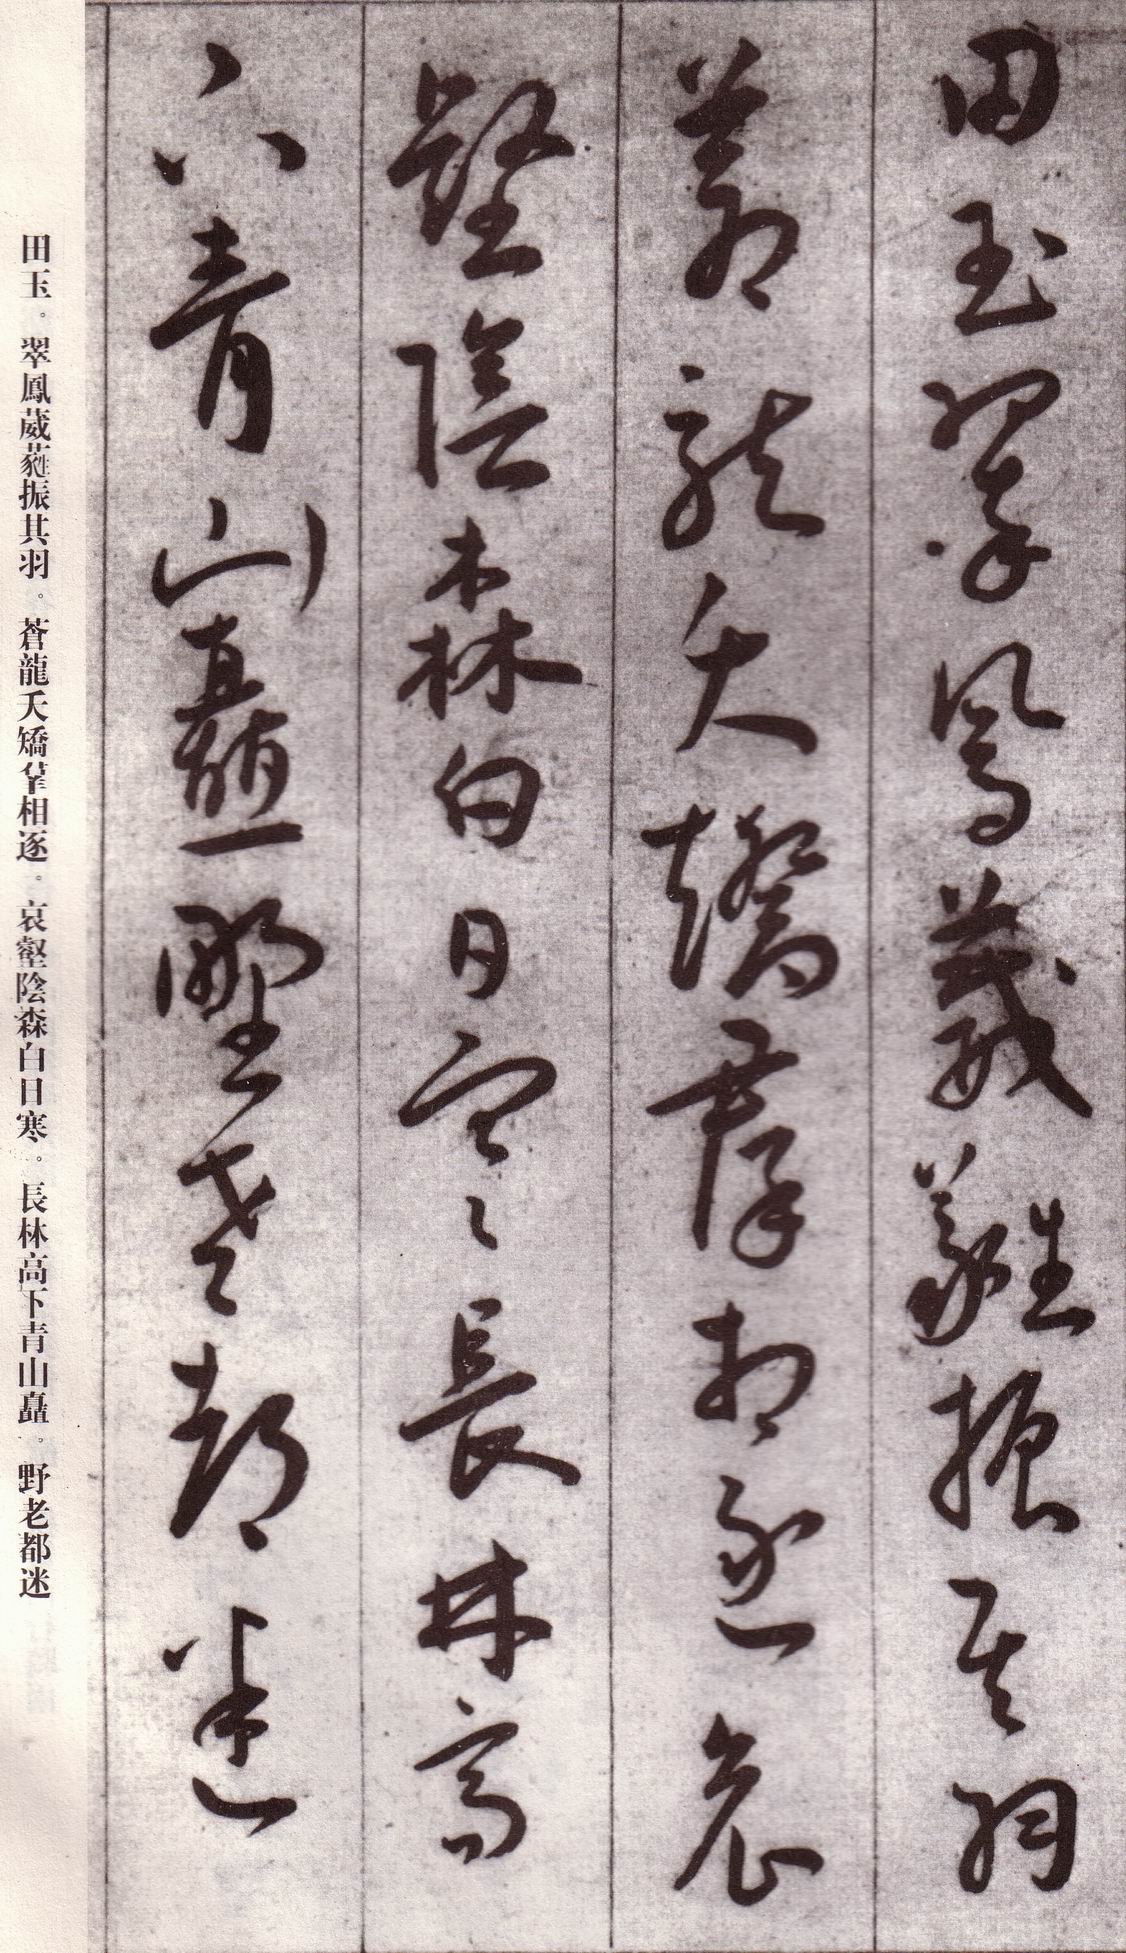 田玉翠鳳葳蕤振其羽
蒼龍夭矯羣相逐哀
壑陰森白日寒長林高
下青山矗野老都迷
田玉。翠鳳葳蕤振其羽。蒼龍夭矯羣相逐。哀壑陰森白日寒。長林高下青山矗。野老都迷